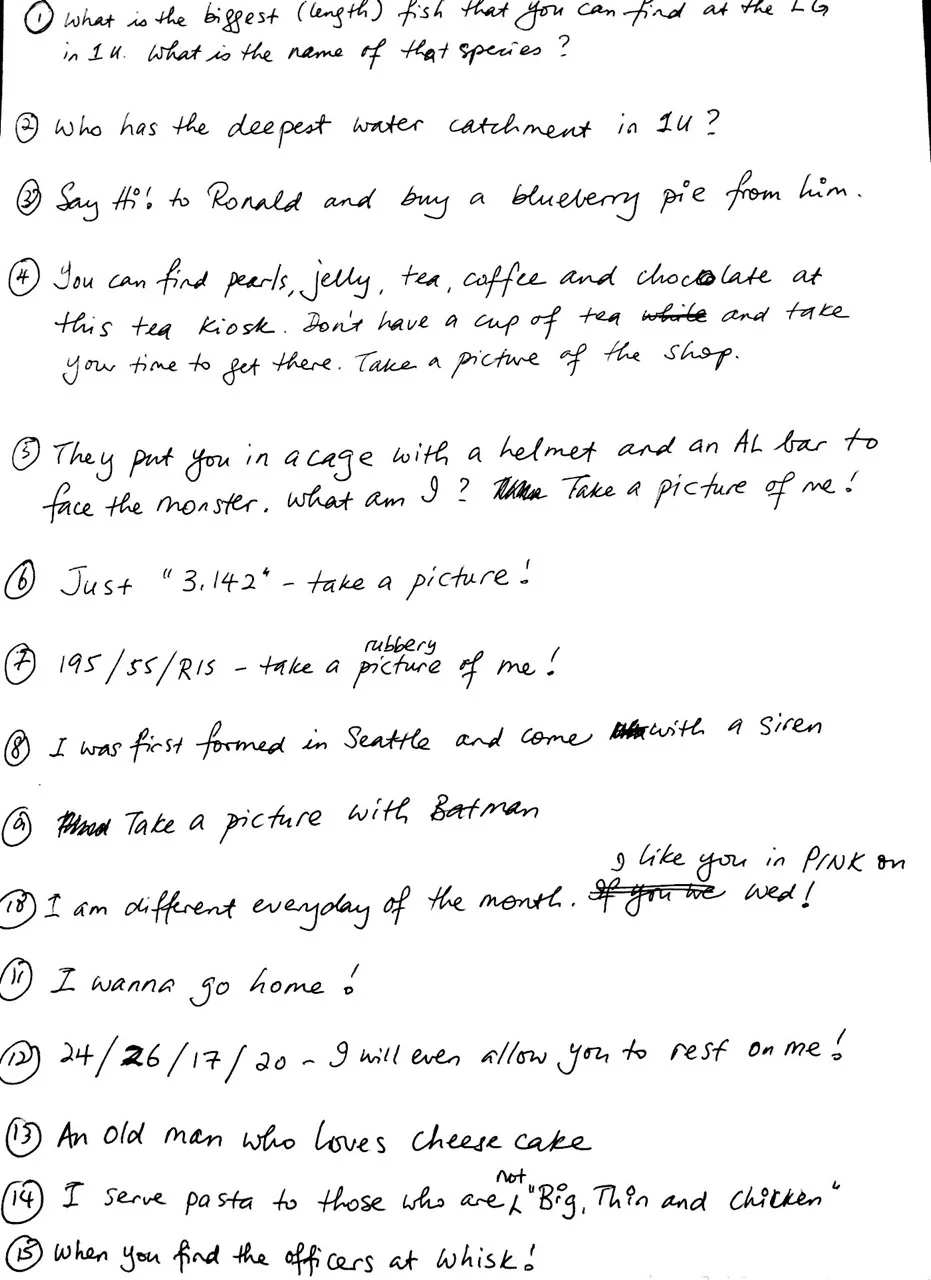 ① What is the biggest (length) fish that you can find at the LG
in 1U. What is the name of that species?
② Who has the deepest water catchment in 1U?
③ Say Hi! to Ronald and buy a blueberry pie from him.
④ You can find pearls, jelly, tea, coffee and chocolate at
this tea kiosk. Don't have a cup of tea while and take
your time to get there. Take a picture of the shop.
⑤ They put you in a cage with a helmet and an AL bar to
face the monster. What am I? Take a picture of me!
⑥ Just "3.142" - take a picture!
⑦ 195/55/R15 - take a rubbery picture of me!
⑧ I was first formed in Seattle and come with a siren
⑨ Take a picture with Batman
⑩ I am different everyday of the month. If you we I like you in PINK on
wed!
⑪ I wanna go home!
⑫ 24/26/17/20 - I will even allow you to rest on me!
⑬ An old man who loves cheese cake
⑭ I serve pasta to those who are not "Big, Thin and Chicken"
⑮ When you find the officers at whisk!